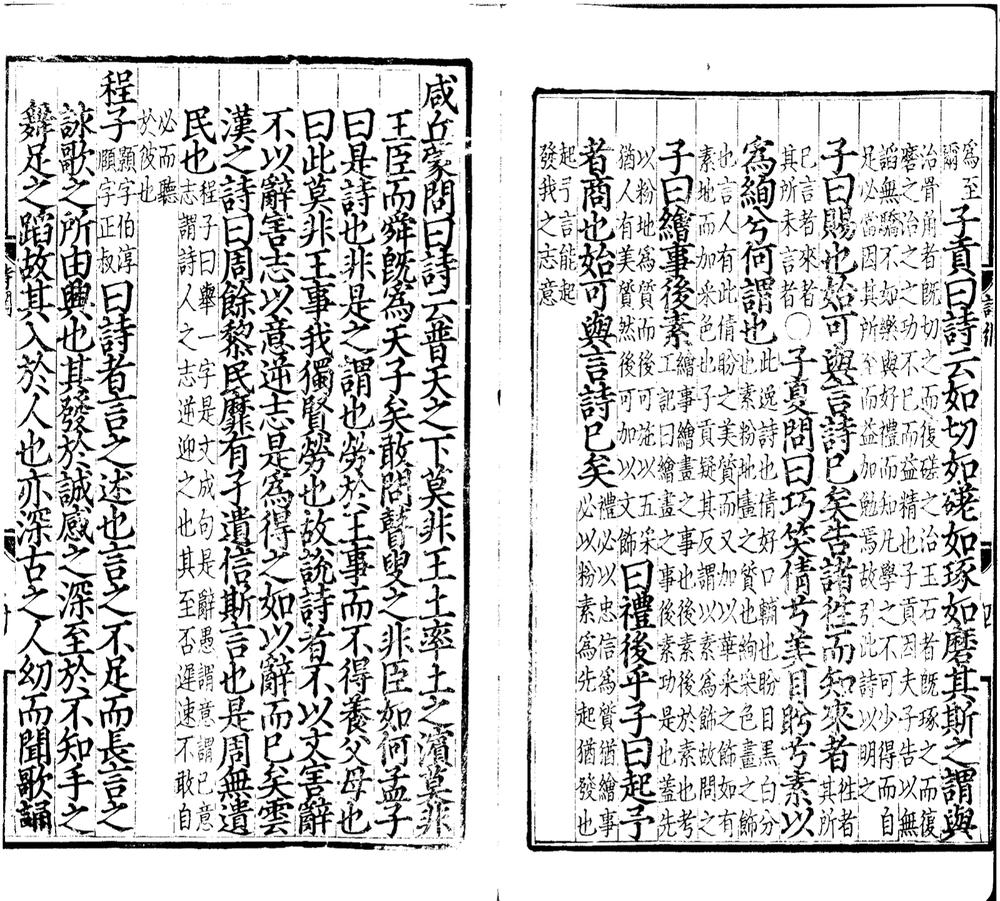 為至
爾
子貢曰詩云如切如磋如琢如磨其斯之謂與
治骨角者既切之而復磋之治玉石者既琢之而復
磨之治之之功不已而益精也子貢因夫子告以無
謟無驕不如樂與好禮而知凡學之不可少得而自
足必當因其所至而益加勉焉故引此詩以明之
子曰賜也始可與言詩已矣告諸往而知來者
往者
其所
已言者來者
其所未言者
○子夏問曰巧笑倩兮美目盼兮素以
為絢兮何謂也
此逸詩也倩好口輔也盼目黑白分
也素粉地畫之質也絢采色畫之飾
也言人有此倩盼之美質而又加以華采之飾如有
素地而加采色也子貢疑其反謂以素為飾故問之
子曰繪事後素
繪事繪畫之事也後素後於素也考
工記曰繪畫之事後素功是也蓋先
以粉地為質而後可施以五采
猶人有美質然後可加以文飾
曰禮後乎子曰起予
者商也始可與言詩已矣
禮必以忠信為質猶繪事
必以粉素為先起猶發也
起予言能起
發我之志意
咸丘蒙問曰詩云普天之下莫非王土率土之濱莫非
王臣而舜既為天子矣敢問瞽叟之非臣如何孟子
曰是詩也非是之謂也勞於王事而不得養父母也
曰此莫非王事我獨賢勞也故說詩者不以文害辭
不以辭害志以意逆志是為得之如以辭而已矣雲
漢之詩曰周餘黎民靡有孑遺信斯言也是周無遺
民也
程子曰舉一字是文成句是辭愚謂意謂己意
志謂詩人之志逆迎之也其至否遲速不敢自
必而聽
於彼也
程子
顥字伯淳
頤字正叔
曰詩者言之述也言之不足而長言之
詠歌之所由興也其發於誠感之深至於不知手之
舞足之蹈故其入於人也亦深古之人幼而聞歌誦